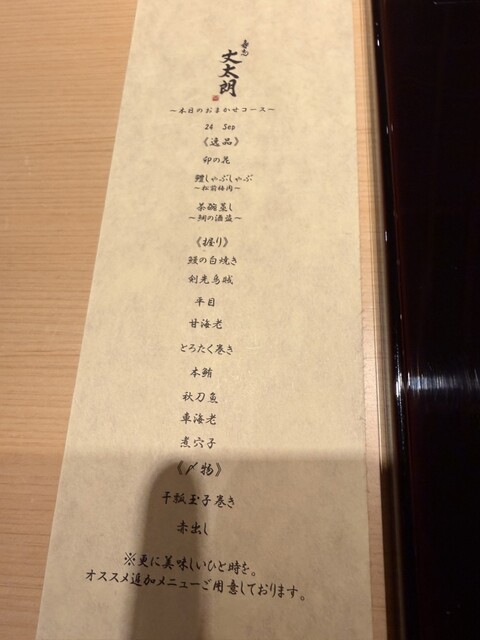 寿志
丈太朗
〜本日のおまかせコース〜
24 Sep
《逸品》
卯の花
鱧しゃぶしゃぶ
〜松前梅肉〜
茶碗蒸し
〜鯛の酒盗〜
《握り》
鰻の白焼き
剣先烏賊
平目
甘海老
とろたく巻き
本鮪
秋刀魚
車海老
煮穴子
《〆物》
干瓢玉子巻き
赤出し
※更に美味しいひと時を。
オススメ追加メニューご用意しております。